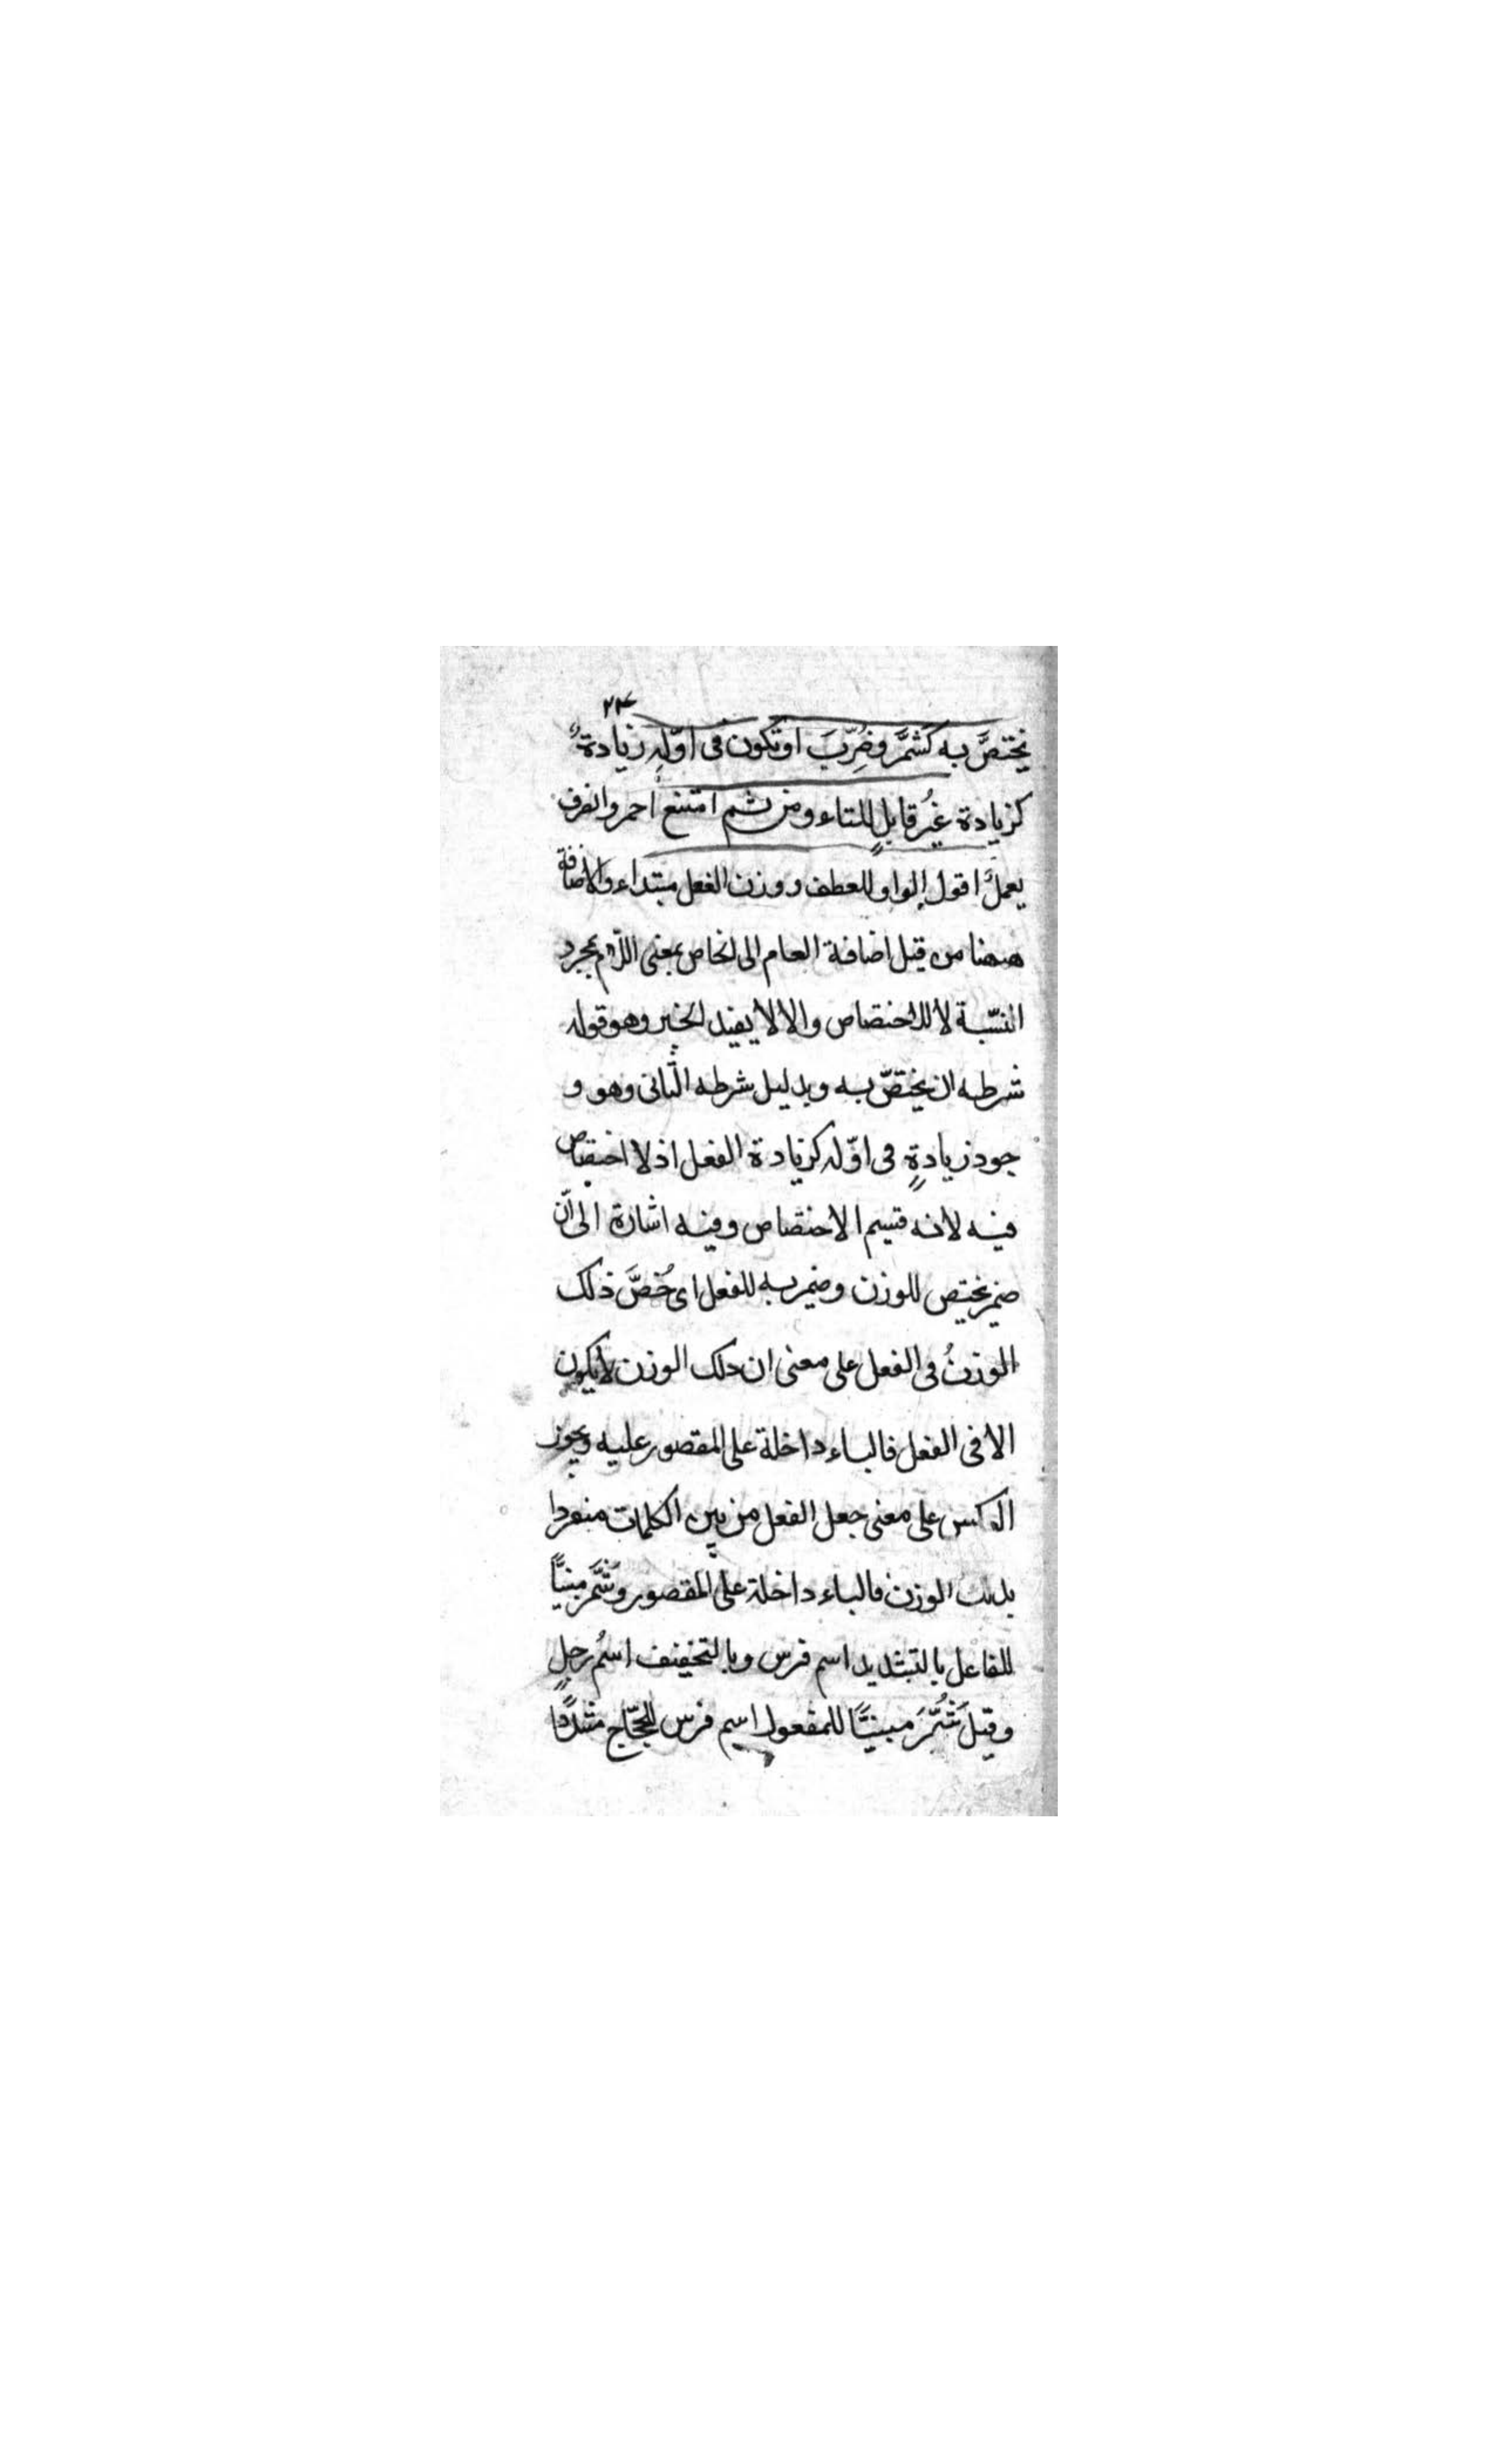 ٢٣
يختصَّ به كشمَّر وضُرِّبَ او تكون فى اوّلهِ زيادةٌ
كزيادة غيرُ قابلٍ للتاء ومن ثم امتنع احمر وانصرف
يعملُ اقول الواو للعطف ووزن الفعل مبتداء والاضافة
ههنا من قبيل اضافة العام الى الخاص بمعنى اللام بمجرد
النسّبة لا للاختصاص والا لا يفيد الخبر وهو قوله
شرطه ان يختصّ به وبدليل شرطه الثانى وهو و
جود زيادةٍ فى اوّله كزيادة الفعل اذ لا اختصاص
فيه لانه قسيم الاختصاص وفيه اشارة الى انّ
ضمير يختص للوزن وضمير به للفعل اى خُصَّ ذلك
الوزنُ فى الفعل على معنى ان ذلك الوزن لا يكون
الا فى الفعل فالباء داخلة على المقصور عليه ويجوز
العكس على معنى جعل الفعل من بين الكلمات منفردا
بذلك الوزن فالباء داخلة على المقصور وشَمَّر مبنيًّا
للفاعل بالتشديد اسم فرس وبالتخفيف اسمُ رجلٍ
وقيلَ شُمِّرَ مبينيًّا للمفعول اسم فرس للحجّاج مشدّدًا